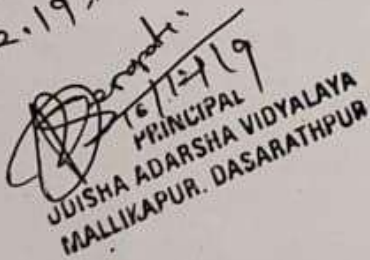 2.19
16/12/19
PRINCIPAL
ODISHA ADARSHA VIDYALAYA
MALLIKAPUR. DASARATHPUR